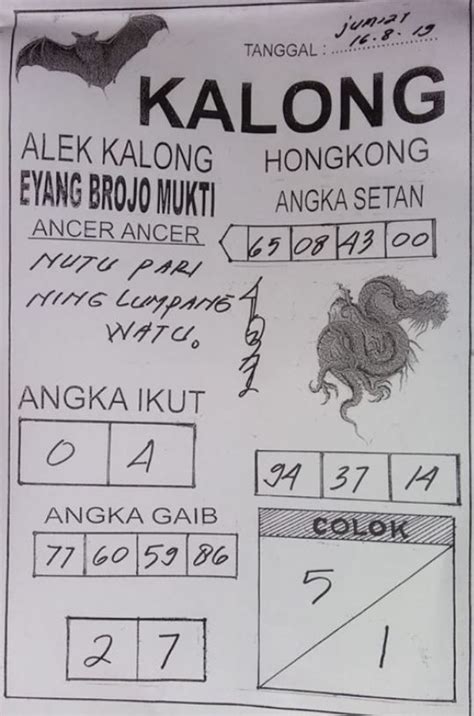 TANGGAL : jum'at 16.8.19
KALONG
ALEK KALONG
EYANG BROJO MUKTI
HONGKONG
ANGKA SETAN
65 08 43 00
ANCER ANCER
NUTU PARI
NING LUMPANG
WATU.
4
7
2
ANGKA IKUT
0 4
94 37 14
ANGKA GAIB
77 60 59 86
2 7
COLOK
5
1